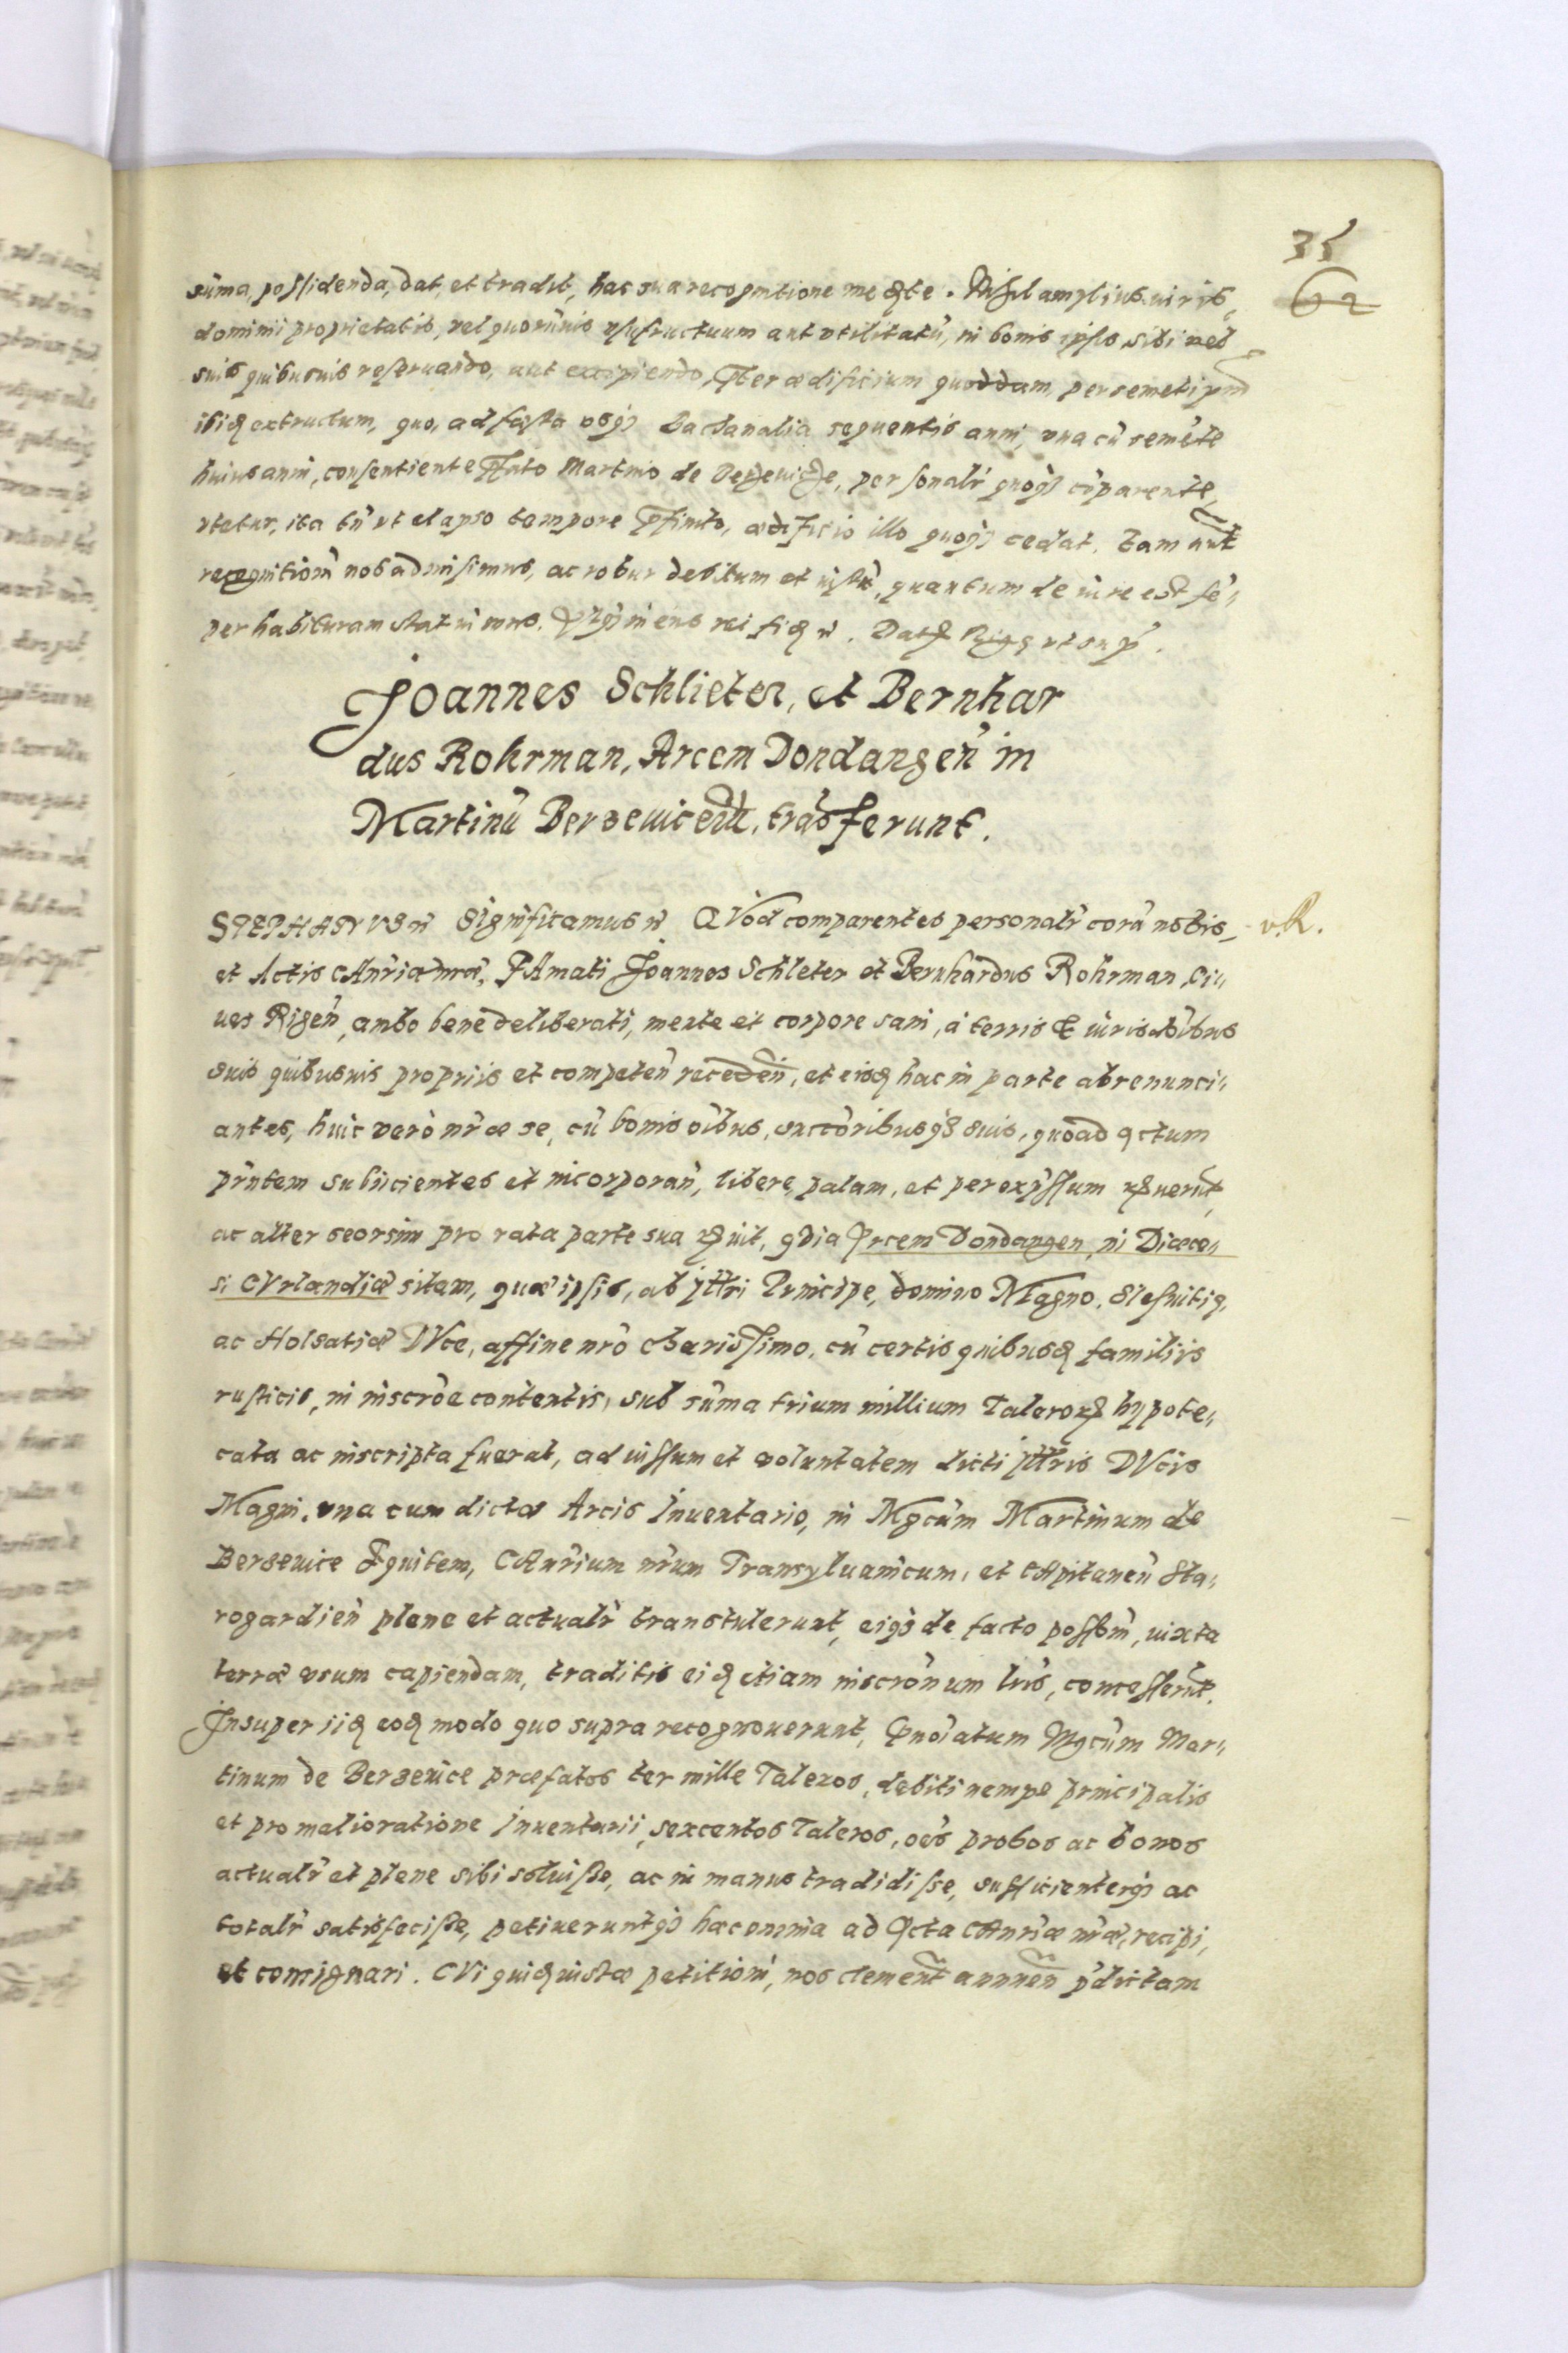 35
62
sūma, possidenda, dat, et tradit, hac sua recognitione mediāte. Nihil amplius iuris,
dominii proprietatis, vel quorūuis vsufructuum aut vtilitatū, in bonis ipsis, sibi vel
suis quibusuis reseruando, aut excipiendo, pter ædificium quoddam, per semetipm
ibidē extructum, quo, ad festa vsq3 Bachanalia sequentis anni, vna cū semēte
huius anni, consentiente pfato Martino de Berzeuicze, personalr quoq3 cōparente,
vtatur, ita tn̄ vt elapso tempore pfinito, ædificio illo quoq3 cedat. Eam aut
recognitionē nos admisimus, ac robur debitum et iustū, quantum de iure est sē,,
per habituram statuimus. In cuius rei fidē n̄. Dat Rigę vt supr.
Joannes Schlieter, et Bernhar
dus Rohrman, Arcem Dondangeñ in
Martinū Berzeuiceū, trāsferunt.
STEPHANVS n̄ Significamus n̄ QVod comparentes personalr̄ corā nobis
v.R.
et Actis CAnr̄iæ nr̄æ, FAmati Joannes Schleter et Bernhardus Rohrman, Ci,,
ues Rigeñ, ambo bene deliberati, mente et corpore sani, à terris et iurisdōibus
suis quibusuis propriis et competeñ recedeñ, et eisdē hac in parte abrenunci,,
antes, huic verò nr̄æ se, cū bonis oībus, succ̄oribusq3 suis, quoad actum
pn̄tem subiicientes et incorporañ, libere, palam, et per expssum recog̃uerūt,
ac alter seorsim pro rata parte sua recog̃uit, quia Arcem Dondangen, in Diœce,,
si CVrlandiæ sitam, quæ ipsis, ab Illri Principe, domino Magno, Slesuitię,
ac Holsatiæ DVce, affine nr̄o charissimo, cū certis quibusdā familiis
rusticis, in inscrōe contentis, sub sūma trium millium Talerorū hypote,,
cata ac inscripta fuerat, ad iussum et voluntatem dicti Illris DVcis
Magni, vna cum dictæ Arcis inuentario, in Mgcūm Martinum de
Berzeuice Equitem, CAnr̄ium nr̄um Transyluanicum, et CApitaneū Sta,,
rogardieñ plene et actualr̄ transtulerunt, eiq3 de facto possōm̄, iuxta
terræ vsum capiendam, traditis eidē etiam inscrōnum lris, concesserūt.
Insuper iidē eodē modo quo supra recognouerunt, pnōiatum Mgcūm Mar,,
tinum de Berzeuice præfatos ter mille Taleros, debiti nempe principalis
et pro melioratione inuentarii, sexcentos Taleros, oēs probos ac bonos
actualr̄ et plene sibi soluisse, ac in manus tradidisse, sufficienterq3 ac
totalr̄ satisfecisse, petiueruntq3 hæc omnia ad Acta CAnr̄iæ nr̄æ, recipi,
et consignari. CVi quidē iustæ petitioni, nos clement̄ annueñ pdictam